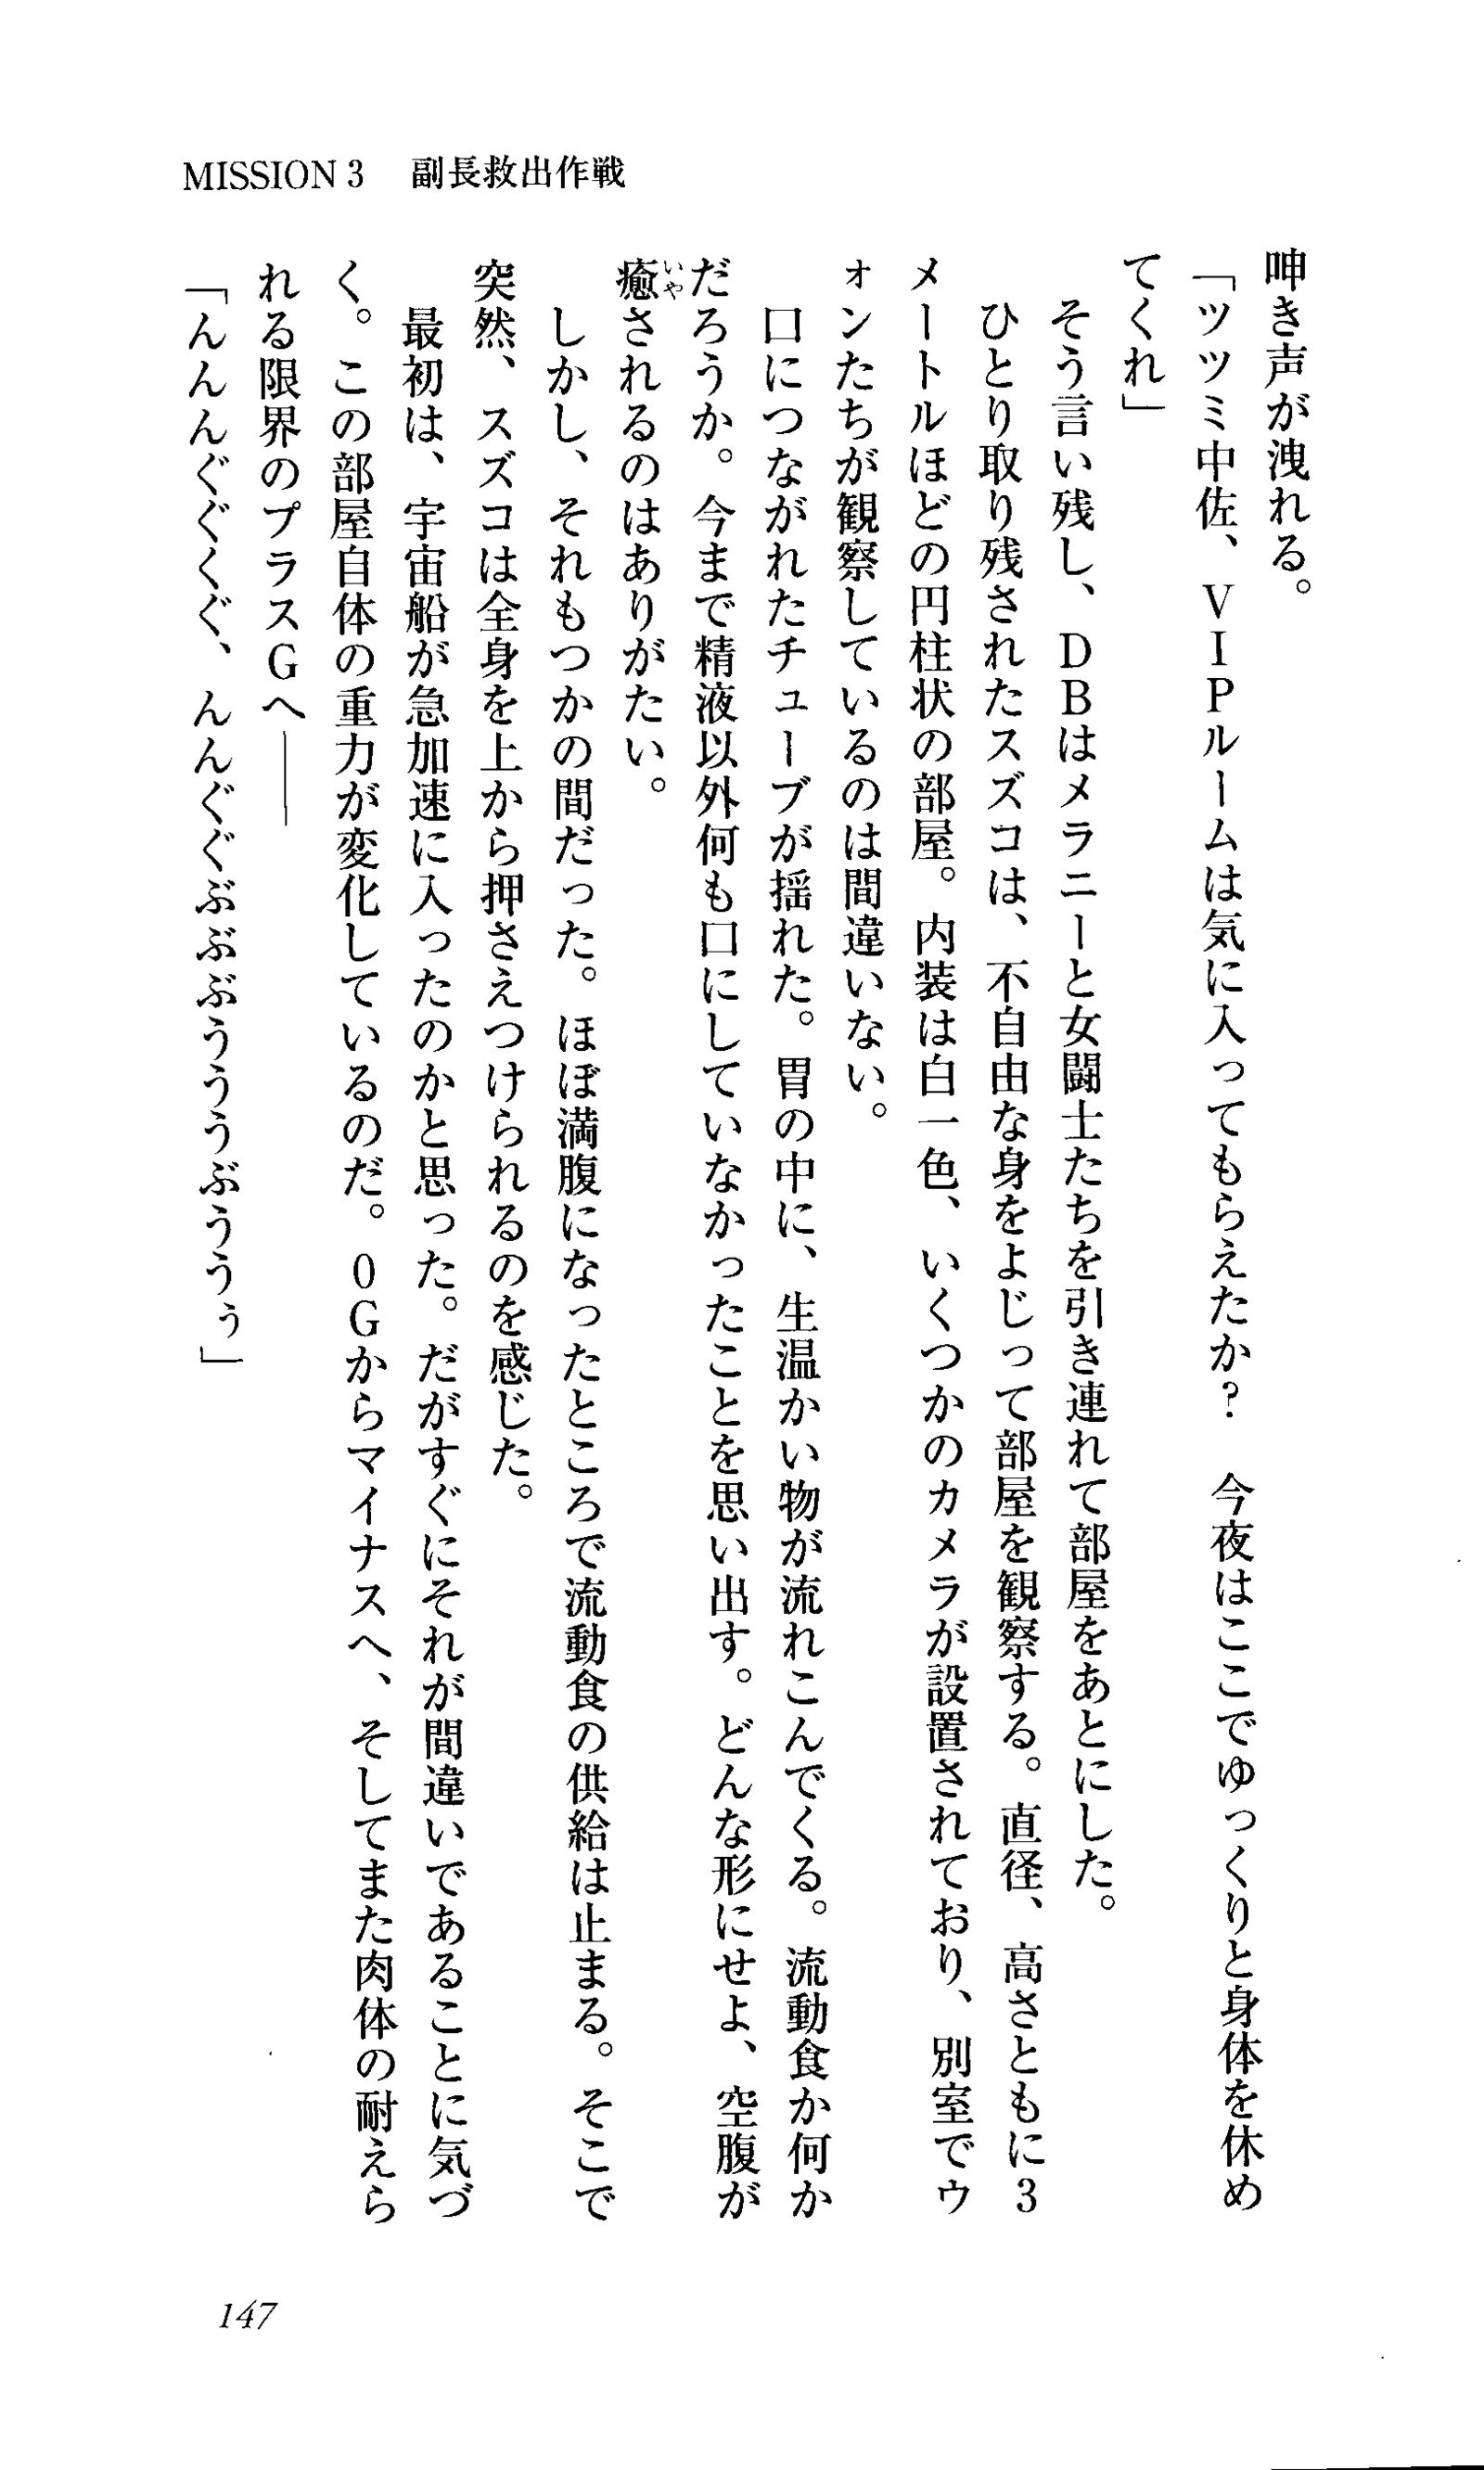 MISSION 3 副長救出作戦
呻き声が洩れる。
「ツツミ中佐、ＶＩＰルームは気に入ってもらえたか？　今夜はここでゆっくりと身体を休め
てくれ」
　そう言い残し、ＤＢはメラニーと女闘士たちを引き連れて部屋をあとにした。
　ひとり取り残されたスズコは、不自由な身をよじって部屋を観察する。直径、高さともに３
メートルほどの円柱状の部屋。内装は白一色、いくつかのカメラが設置されており、別室でウ
ォンたちが観察しているのは間違いない。
　口につながれたチューブが揺れた。胃の中に、生温かい物が流れこんでくる。流動食か何か
だろうか。今まで精液以外何も口にしていなかったことを思い出す。どんな形にせよ、空腹が
癒いやされるのはありがたい。
　しかし、それもつかの間だった。ほぼ満腹になったところで流動食の供給は止まる。そこで
突然、スズコは全身を上から押さえつけられるのを感じた。
　最初は、宇宙船が急加速に入ったのかと思った。だがすぐにそれが間違いであることに気づ
く。この部屋自体の重力が変化しているのだ。０Ｇからマイナスへ、そしてまた肉体の耐えら
れる限界のプラスＧへ――
「んんんぐぐくぐ、んんぐぐぶぶぶうううぶううぅ」
147